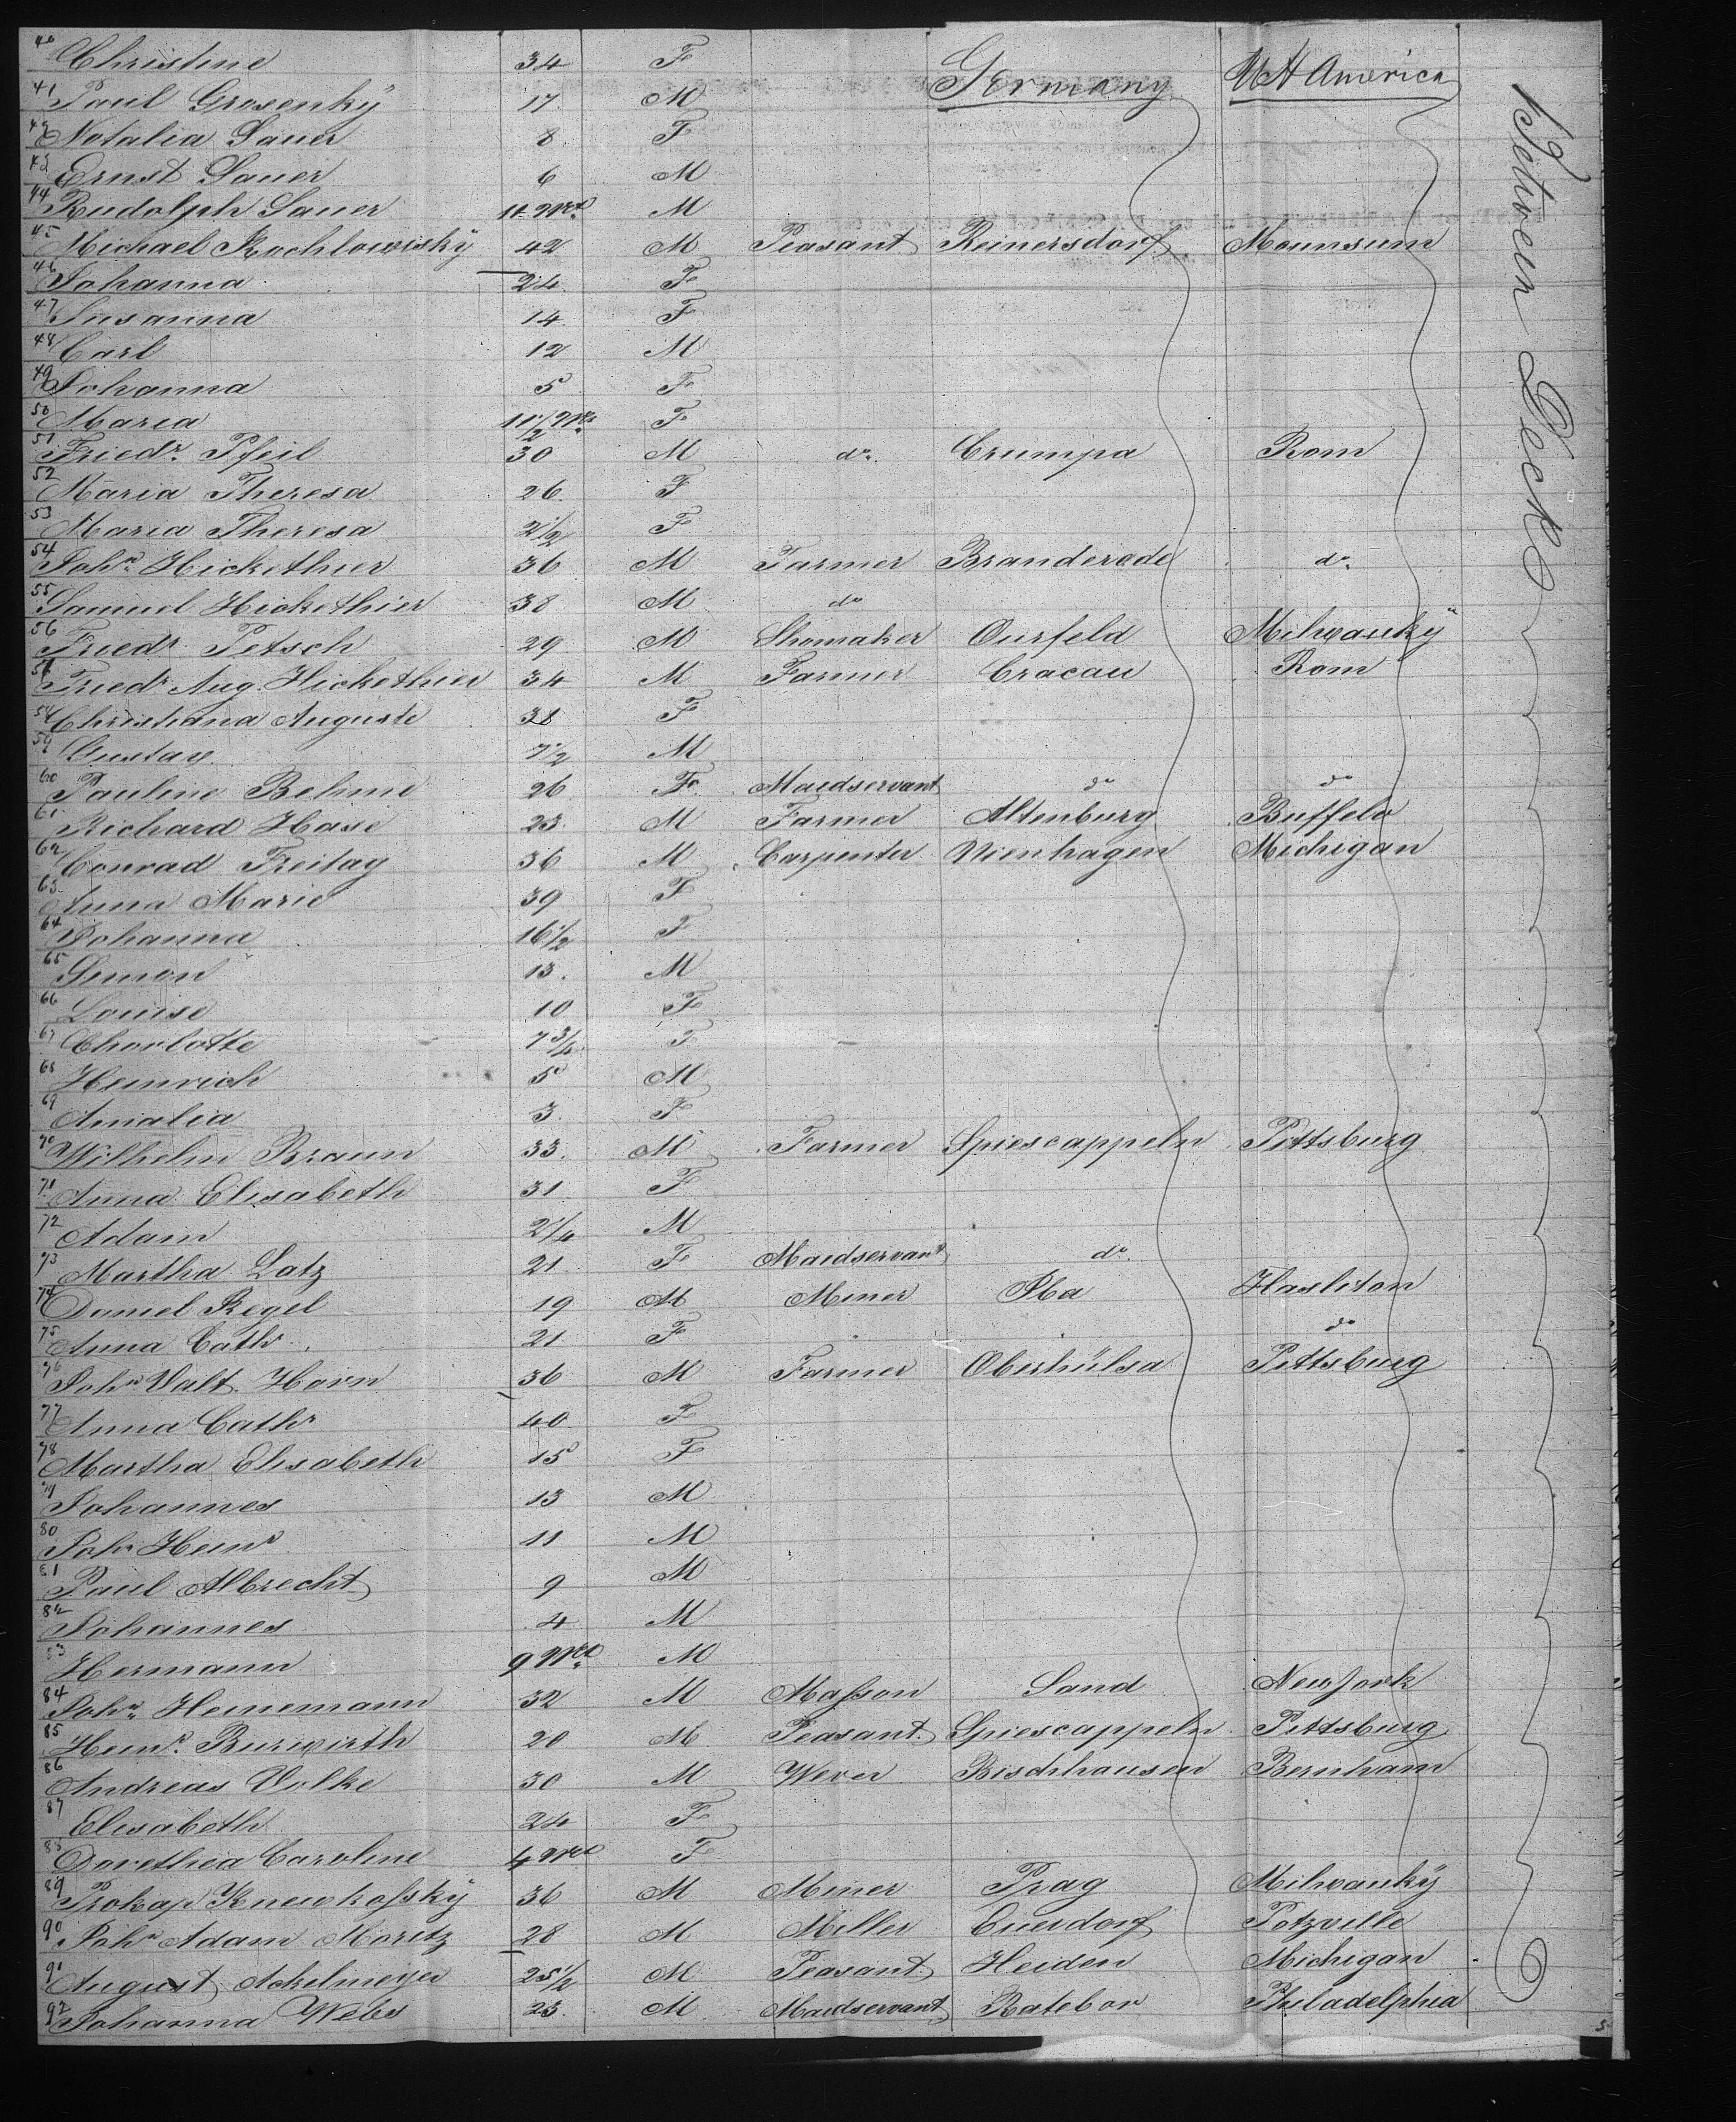 40 Christine 34 F Germany America
41 Paul Grosenkÿ 17 M
42 Natalia Sauer 8 F
43 Ernst Sauer 6 M
44 Rudolph Sauer 11 M
45 Michael 42 M Peasant Reinersdorf Mounsum
46 Johanna 24 F
47 Susanna 14 F
48 Carl 12 M
49 Johanna 5 F
50 Maria F
51 Friedr. Pfeil 30 M do. Crumpa Rom
52 Maria Theresa 26 F
53 Maria Theresa 2 1/2 F
54 John. Hickethier 36 M Farmer Branderode do.
55 Samuel Hickethier 38 M do
56 Friedr. Petsch 29 M Shomaker Ourfeld Milwaukÿ
57 Friedr. Aug. Hickethier 34 M Farmer Cracau Rom
58 Christiana Auguste 38 F
59 Gustav 7 1/2 M
60 Pauline Behme 26 F Maedservant do do
61 Richard Hase 23 M Farmer Altenburg Buffelo
62 Conrad Freitag 36 M Carpenter Nienhagen Michigan
63 Anna Marie 39 F
64 Johanna 16 1/2 F
65 Simon 13. M
66 Louise 10 F
67 Charlotte 7 3/4 F
68 Heinrich 5 M
69 Amalia 3. F
70 Wilhelm Braun 33. M Farmer Spiescappeln Pittsburg
71 Anna Elisabeth 31 F
72 Adam 2 1/4 M
73 Martha Latz 21 F Maedservant do.
74 Daniel Regel 19 M Miner Iba Hasleton
75 Anna Cathr. 21 F do
76 Johs Valt. Horn 36 M Farmer Oberhülsa Pittsburg
77 Anna Cathr 40 F
78 Martha Elisabeth 15 F
79 Johannes 13 M
80 Joh. Heinr 11 M
81 Paul Albrecht 9 M
82 Johannes 4 M
83 Hermann 9 M
84 Johs. Heinemann 32 M Masson Sand New Jork
85 Heinr. Burwirth 20 M Peasant Spiescappeln Pittsburg
86 Andreas Volke 30 M Wever Bischhausen Bernham
87 Elisabeth 24 F
88 Dorethea Caroline 4 F
89 Prokap 36 M Miner Prag Milwaukÿ
90 Johs Adam Moritz 28 M Miller Euerdorf Potzville
91 August Ackelmeijer 25 1/2 M Peasant Heiden Michigan
92 Johanna Webs 23. M Maedservant Ratebor Philadelphia
Between Decks